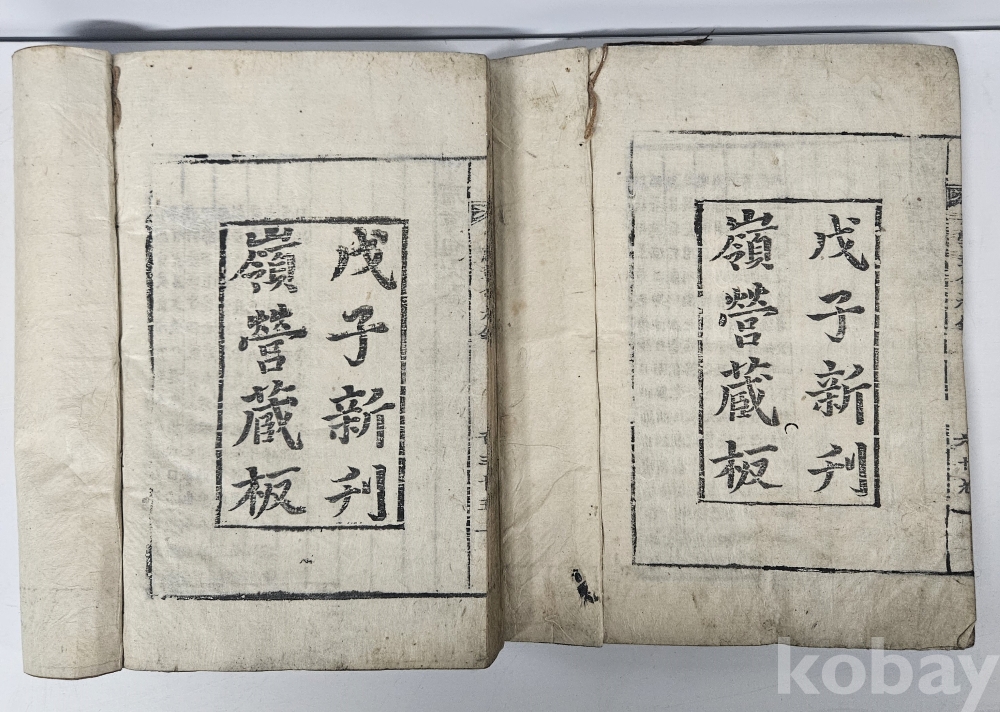 戊子新刊
嶺營蔵板
戊子新刊
嶺營蔵板
kobay